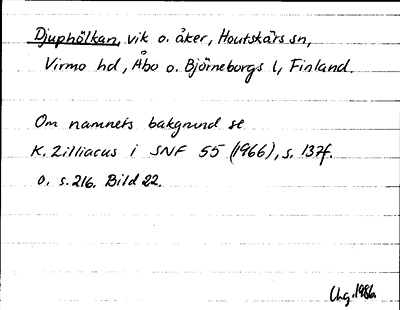 Djuphölkan, vik o. åker, Houtskärs sn,
Virmo hd, Åbo o. Björneborgs l, Finland.
Om namnets bakgrund se
K. Zilliacus i SNF 55 (1966), s. 137f.
o. s. 216. Bild 22.
Uhg. 1986